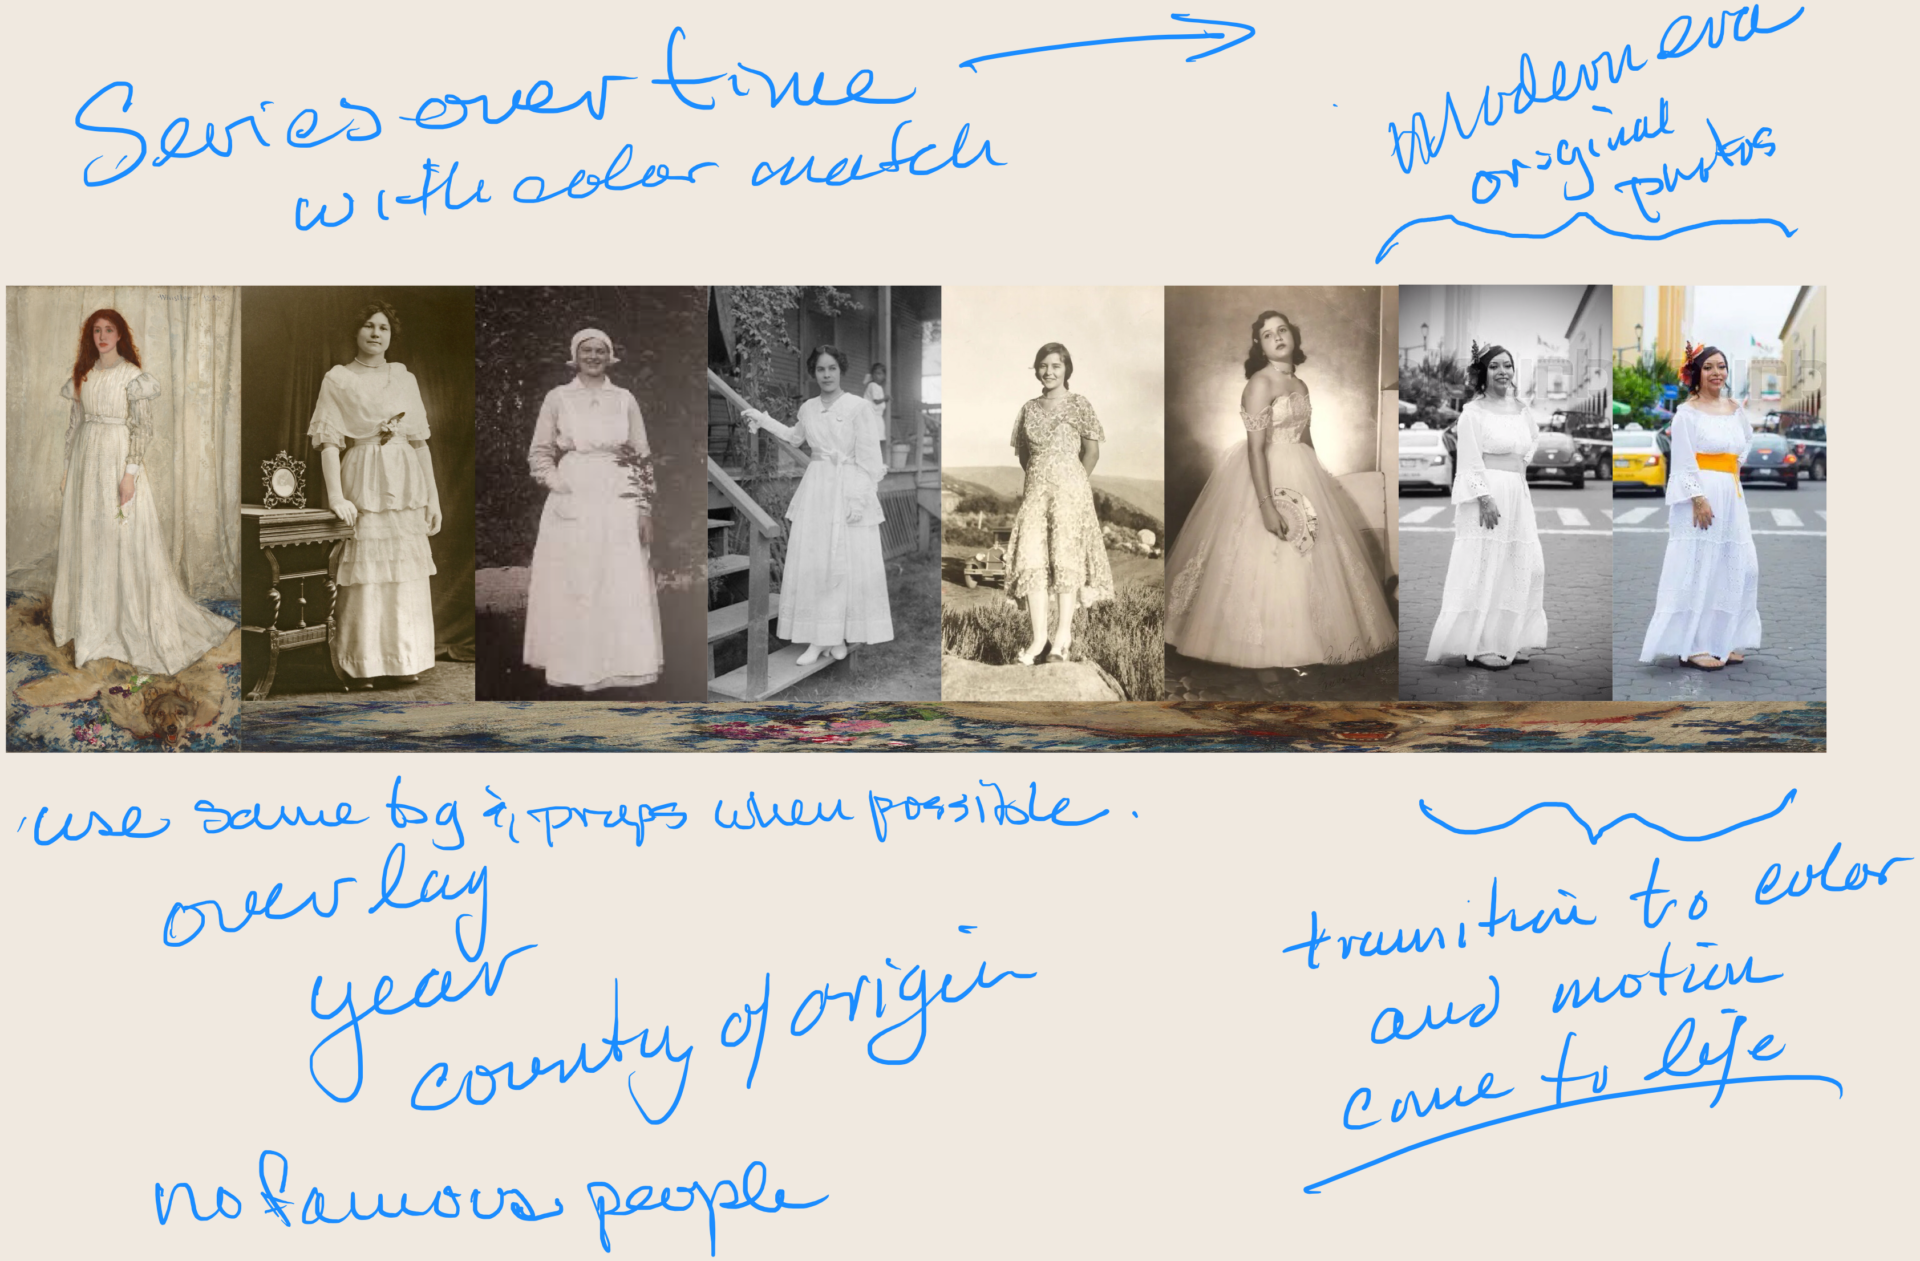 Series over time
with color match
Modern era
original
photos
use same bg & props when possible.
overlay
year
country of origin
no famous people
transition to color
and motion
come to life